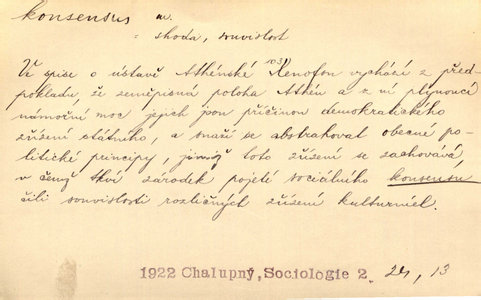 konsensus m.
= shoda, souvislost
Ve spise o ústavě Athénské 103) Xenofon vychází z před-
pokladu, že zeměpisná poloha Athén a z ní plynoucí
námořní moc jejich jsou příčinou demokratického
zřízení státního, a snaží se abstrahovat obecné po-
litické principy, jimiž toto zřízení se zachovává,
v čemž tkví zárodek pojetí sociálního konsensu
čili souvislosti rozličných zřízení kulturních.
1922 Chalupný, Sociologie 2. 24, 13